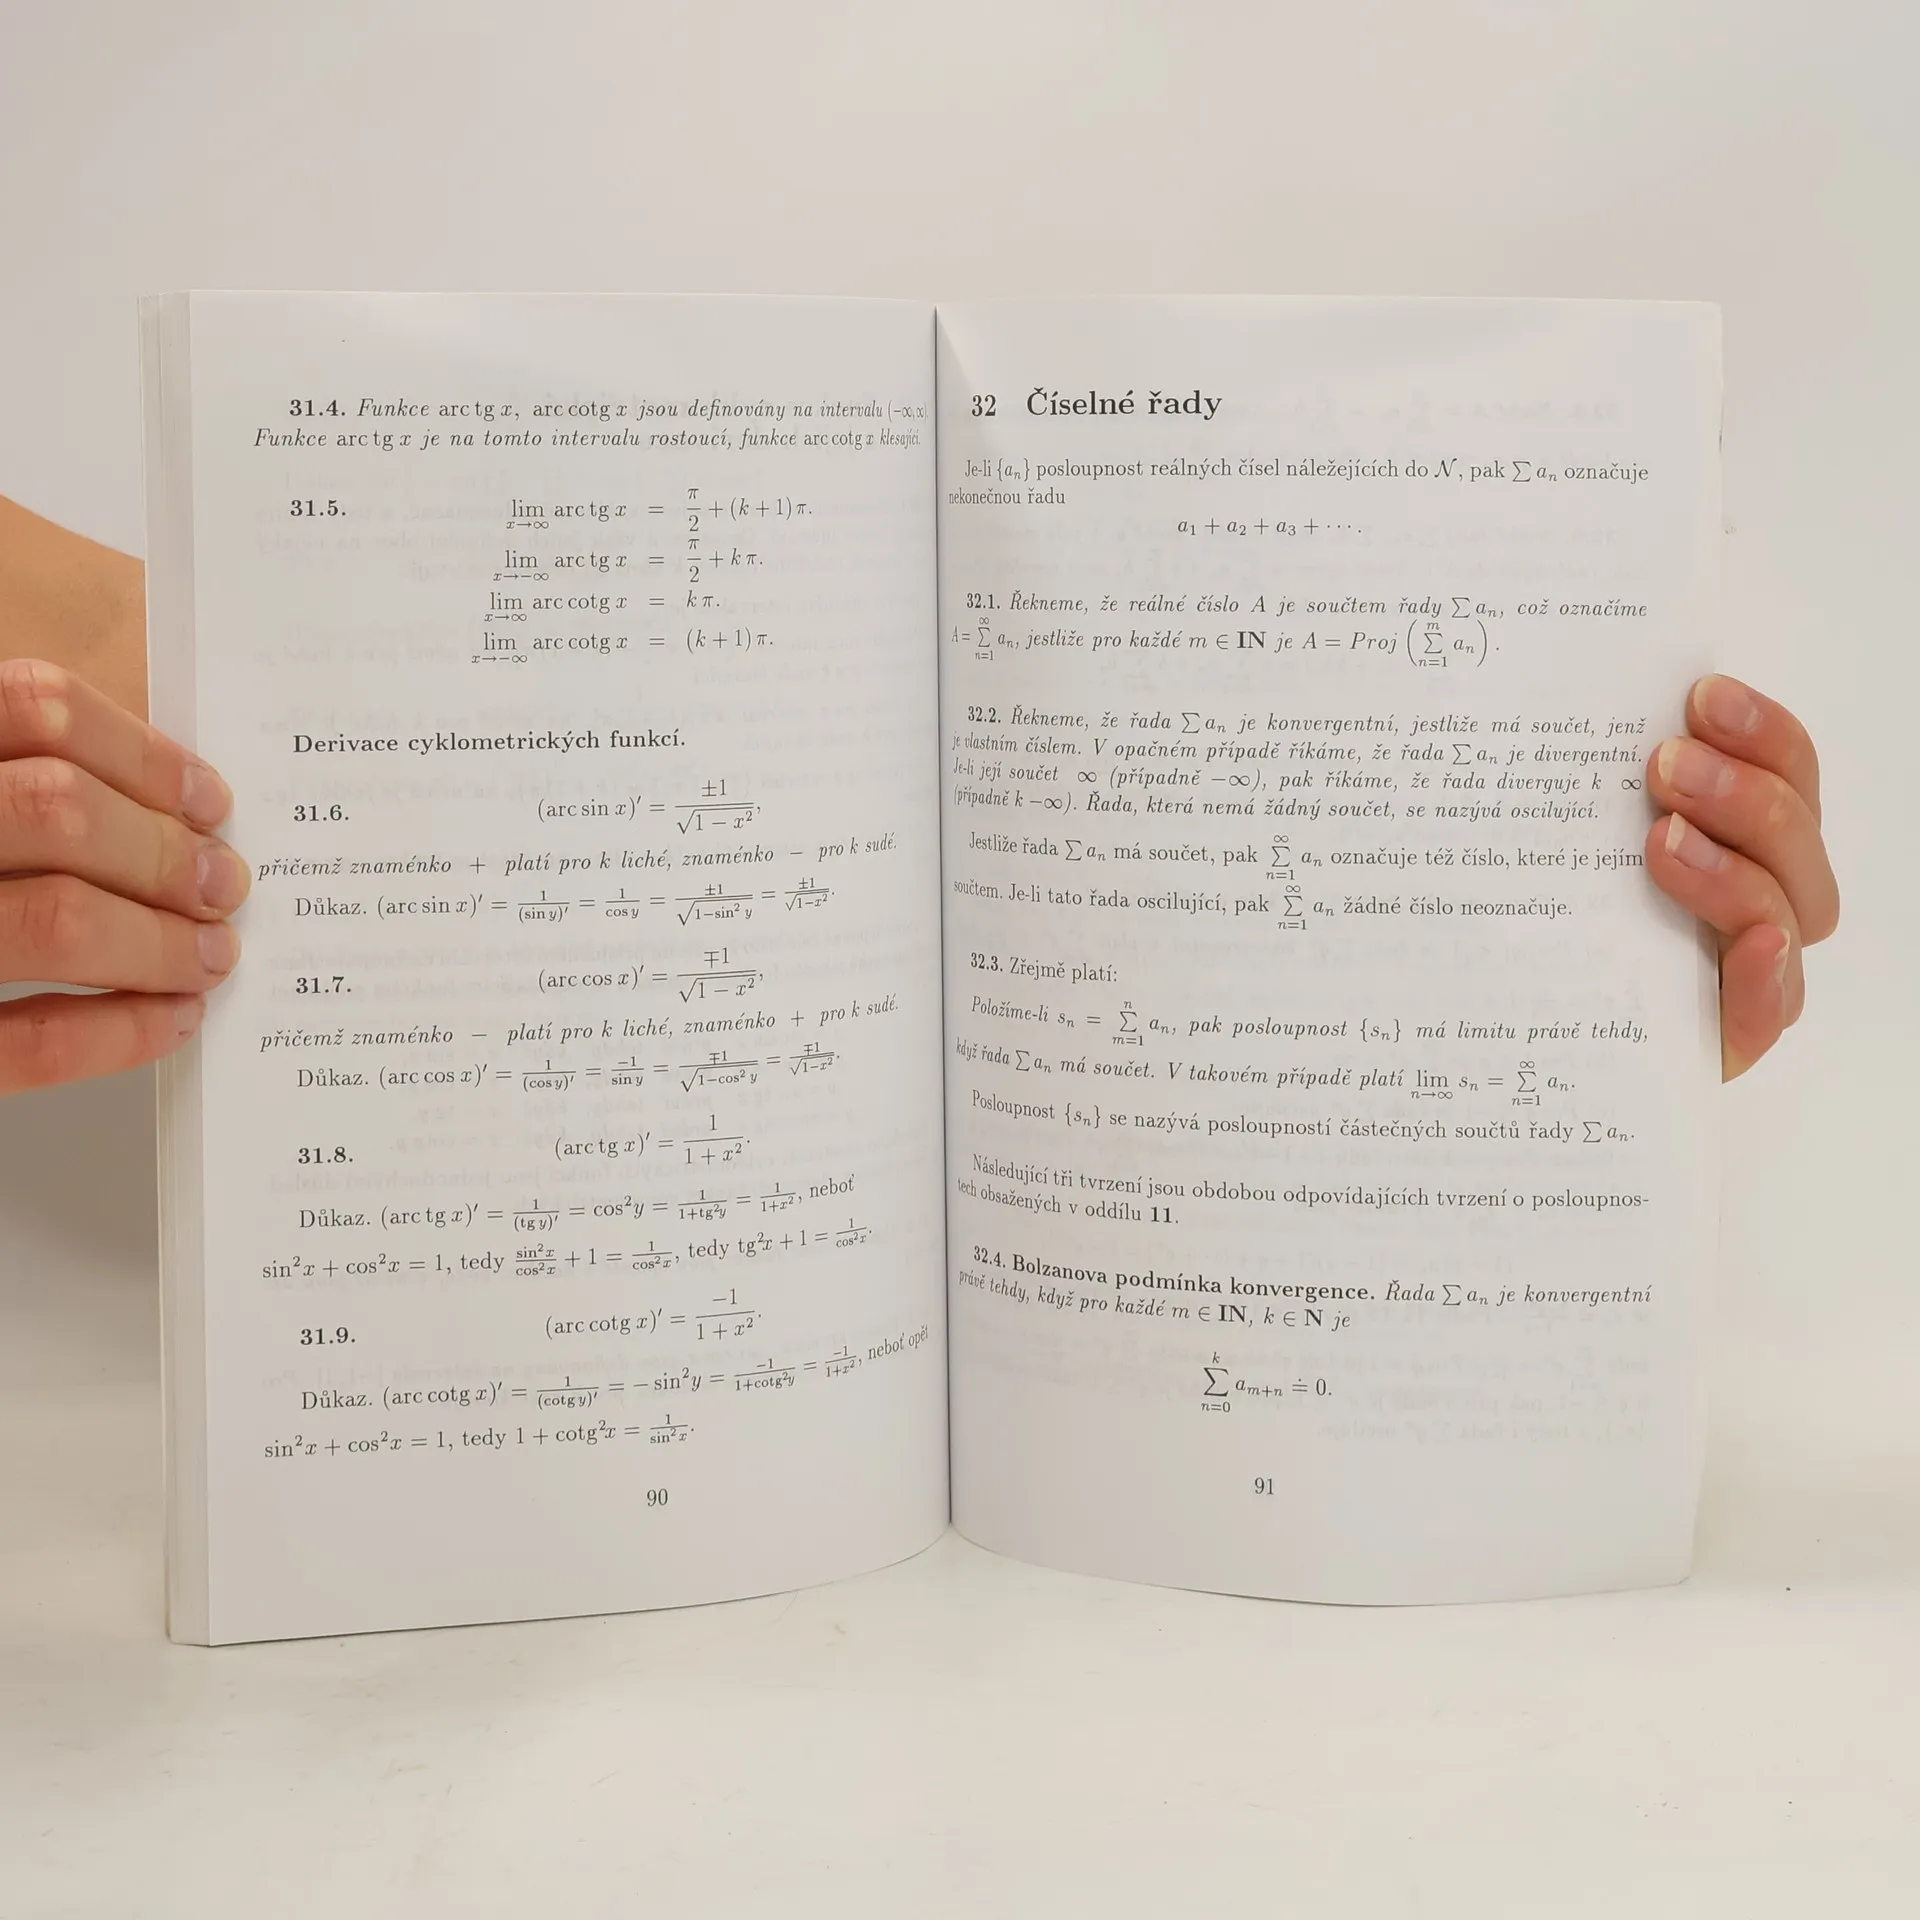 31.4. Funkce arc tg x, arc cotg x jsou definovány na intervalu (−∞, ∞).
Funkce arc tg x je na tomto intervalu rostoucí, funkce arc cotg x klesající.
31.5. lim_{x→∞} arc tg x = π/2 + (k + 1) π.
lim_{x→−∞} arc tg x = π/2 + k π.
lim_{x→∞} arc cotg x = k π.
lim_{x→−∞} arc cotg x = (k + 1) π.
Derivace cyklometrických funkcí.
31.6. (arc sin x)′ = ±1/√(1 − x²),
přičemž znaménko + platí pro k liché, znaménko − pro k sudé.
Důkaz. (arc sin x)′ = 1/(sin y)′ = 1/cos y = ±1/√(1−sin² y) = ±1/√(1−x²).
31.7. (arc cos x)′ = ∓1/√(1 − x²),
přičemž znaménko − platí pro k liché, znaménko + pro k sudé.
Důkaz. (arc cos x)′ = 1/(cos y)′ = −1/sin y = ∓1/√(1−cos² y) = ∓1/√(1−x²).
31.8. (arc tg x)′ = 1/(1 + x²).
Důkaz. (arc tg x)′ = 1/(tg y)′ = cos²y = 1/(1+tg²y) = 1/(1+x²), neboť
sin²x + cos²x = 1, tedy sin²x/cos²x + 1 = 1/cos²x, tedy tg²x + 1 = 1/cos²x.
31.9. (arc cotg x)′ = −1/(1 + x²).
Důkaz. (arc cotg x)′ = 1/(cotg y)′ = − sin²y = −1/(1+cotg²y) = −1/(1+x²), neboť opět
sin²x + cos²x = 1, tedy 1 + cotg²x = 1/sin²x.
90
32 Číselné řady
Je-li {aₙ} posloupnost reálných čísel náležejících do 𝒩, pak ∑ aₙ označuje
nekonečnou řadu
a₁ + a₂ + a₃ + · · · .
32.1. Řekneme, že reálné číslo A je součtem řady ∑ aₙ, což označíme
A = ∑_{n=1}^{∞} aₙ, jestliže pro každé m ∈ IN je A = Proj (∑_{n=1}^{m} aₙ) .
32.2. Řekneme, že řada ∑ aₙ je konvergentní, jestliže má součet, jenž
je vlastním číslem. V opačném případě říkáme, že řada ∑ aₙ je divergentní.
Je-li její součet ∞ (případně −∞), pak říkáme, že řada diverguje k ∞
(případně k −∞). Řada, která nemá žádný součet, se nazývá oscilující.
Jestliže řada ∑ aₙ má součet, pak ∑_{n=1}^{∞} aₙ označuje též číslo, které je jejím
součtem. Je-li tato řada oscilující, pak ∑_{n=1}^{∞} aₙ žádné číslo neoznačuje.
32.3. Zřejmě platí:
Položíme-li sₙ = ∑_{m=1}^{n} aₙ, pak posloupnost {sₙ} má limitu právě tehdy,
když řada ∑ aₙ má součet. V takovém případě platí lim_{n→∞} sₙ = ∑_{n=1}^{∞} aₙ.
Posloupnost {sₙ} se nazývá posloupností částečných součtů řady ∑ aₙ.
Následující tři tvrzení jsou obdobou odpovídajících tvrzení o posloupnos-
tech obsažených v oddílu 11.
32.4. Bolzanova podmínka konvergence. Řada ∑ aₙ je konvergentní
právě tehdy, když pro každé m ∈ IN, k ∈ N je
∑_{n=0}^{k} aₘ₊ₙ ≐ 0.
91